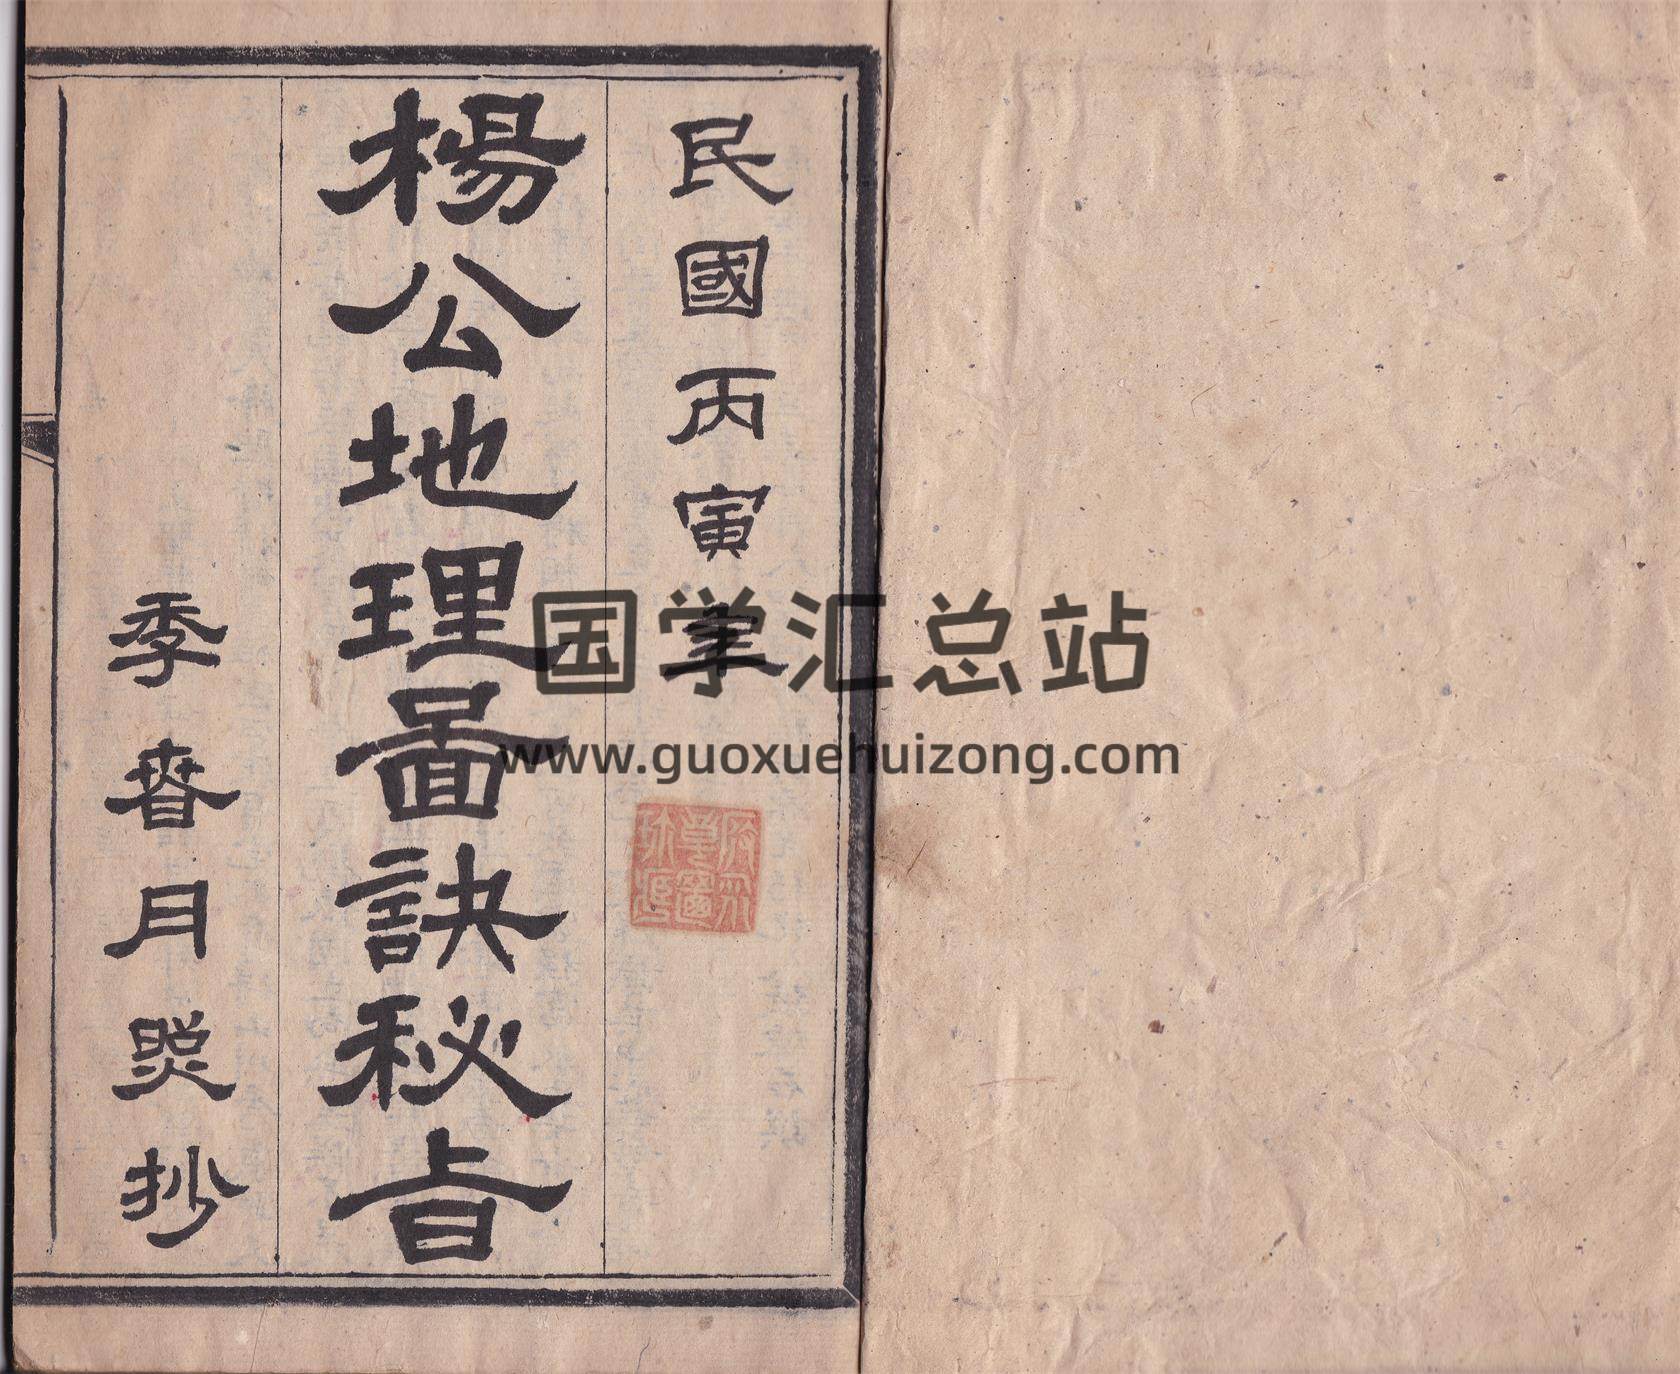 民國丙寅年
楊公地理啚訣秘㫖
季春月照抄
国学汇总站
www.guoxuehuizong.com